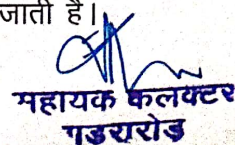 जाती है।
महायक कलक्टर
गडरारोड